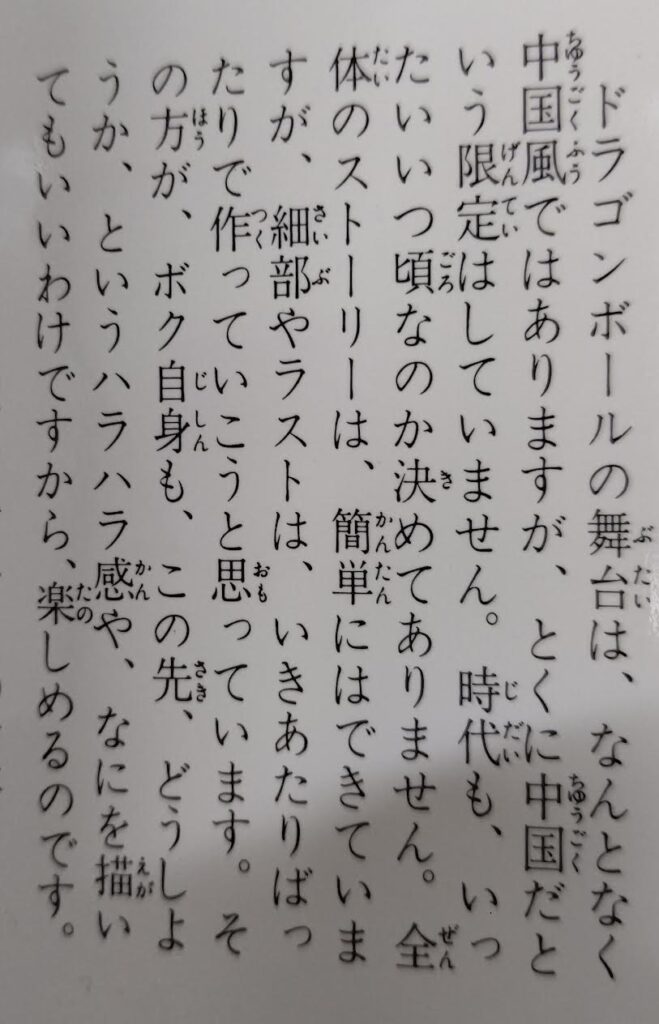 ドラゴンボールの舞台は、なんとなく
中国風ではありますが、とくに中国だと
いう限定はしていません。時代も、いっ
たいいつ頃なのか決めてありません。全
体のストーリーは、簡単にはできていま
すが、細部やラストは、いきあたりばっ
たりで作っていこうと思っています。そ
の方が、ボク自身も、この先、どうしよ
うか、というハラハラ感や、なにを描い
てもいいわけですから、楽しめるのです。